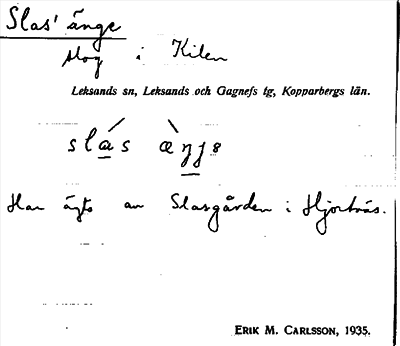 Slas' änge
skog i Kilen
Leksands sn, Leksands och Gagnefs tg, Kopparbergs län.
slás
Har ägts av Slasgården i Hjortnäs.
ERIK M. CARLSSON, 1935.